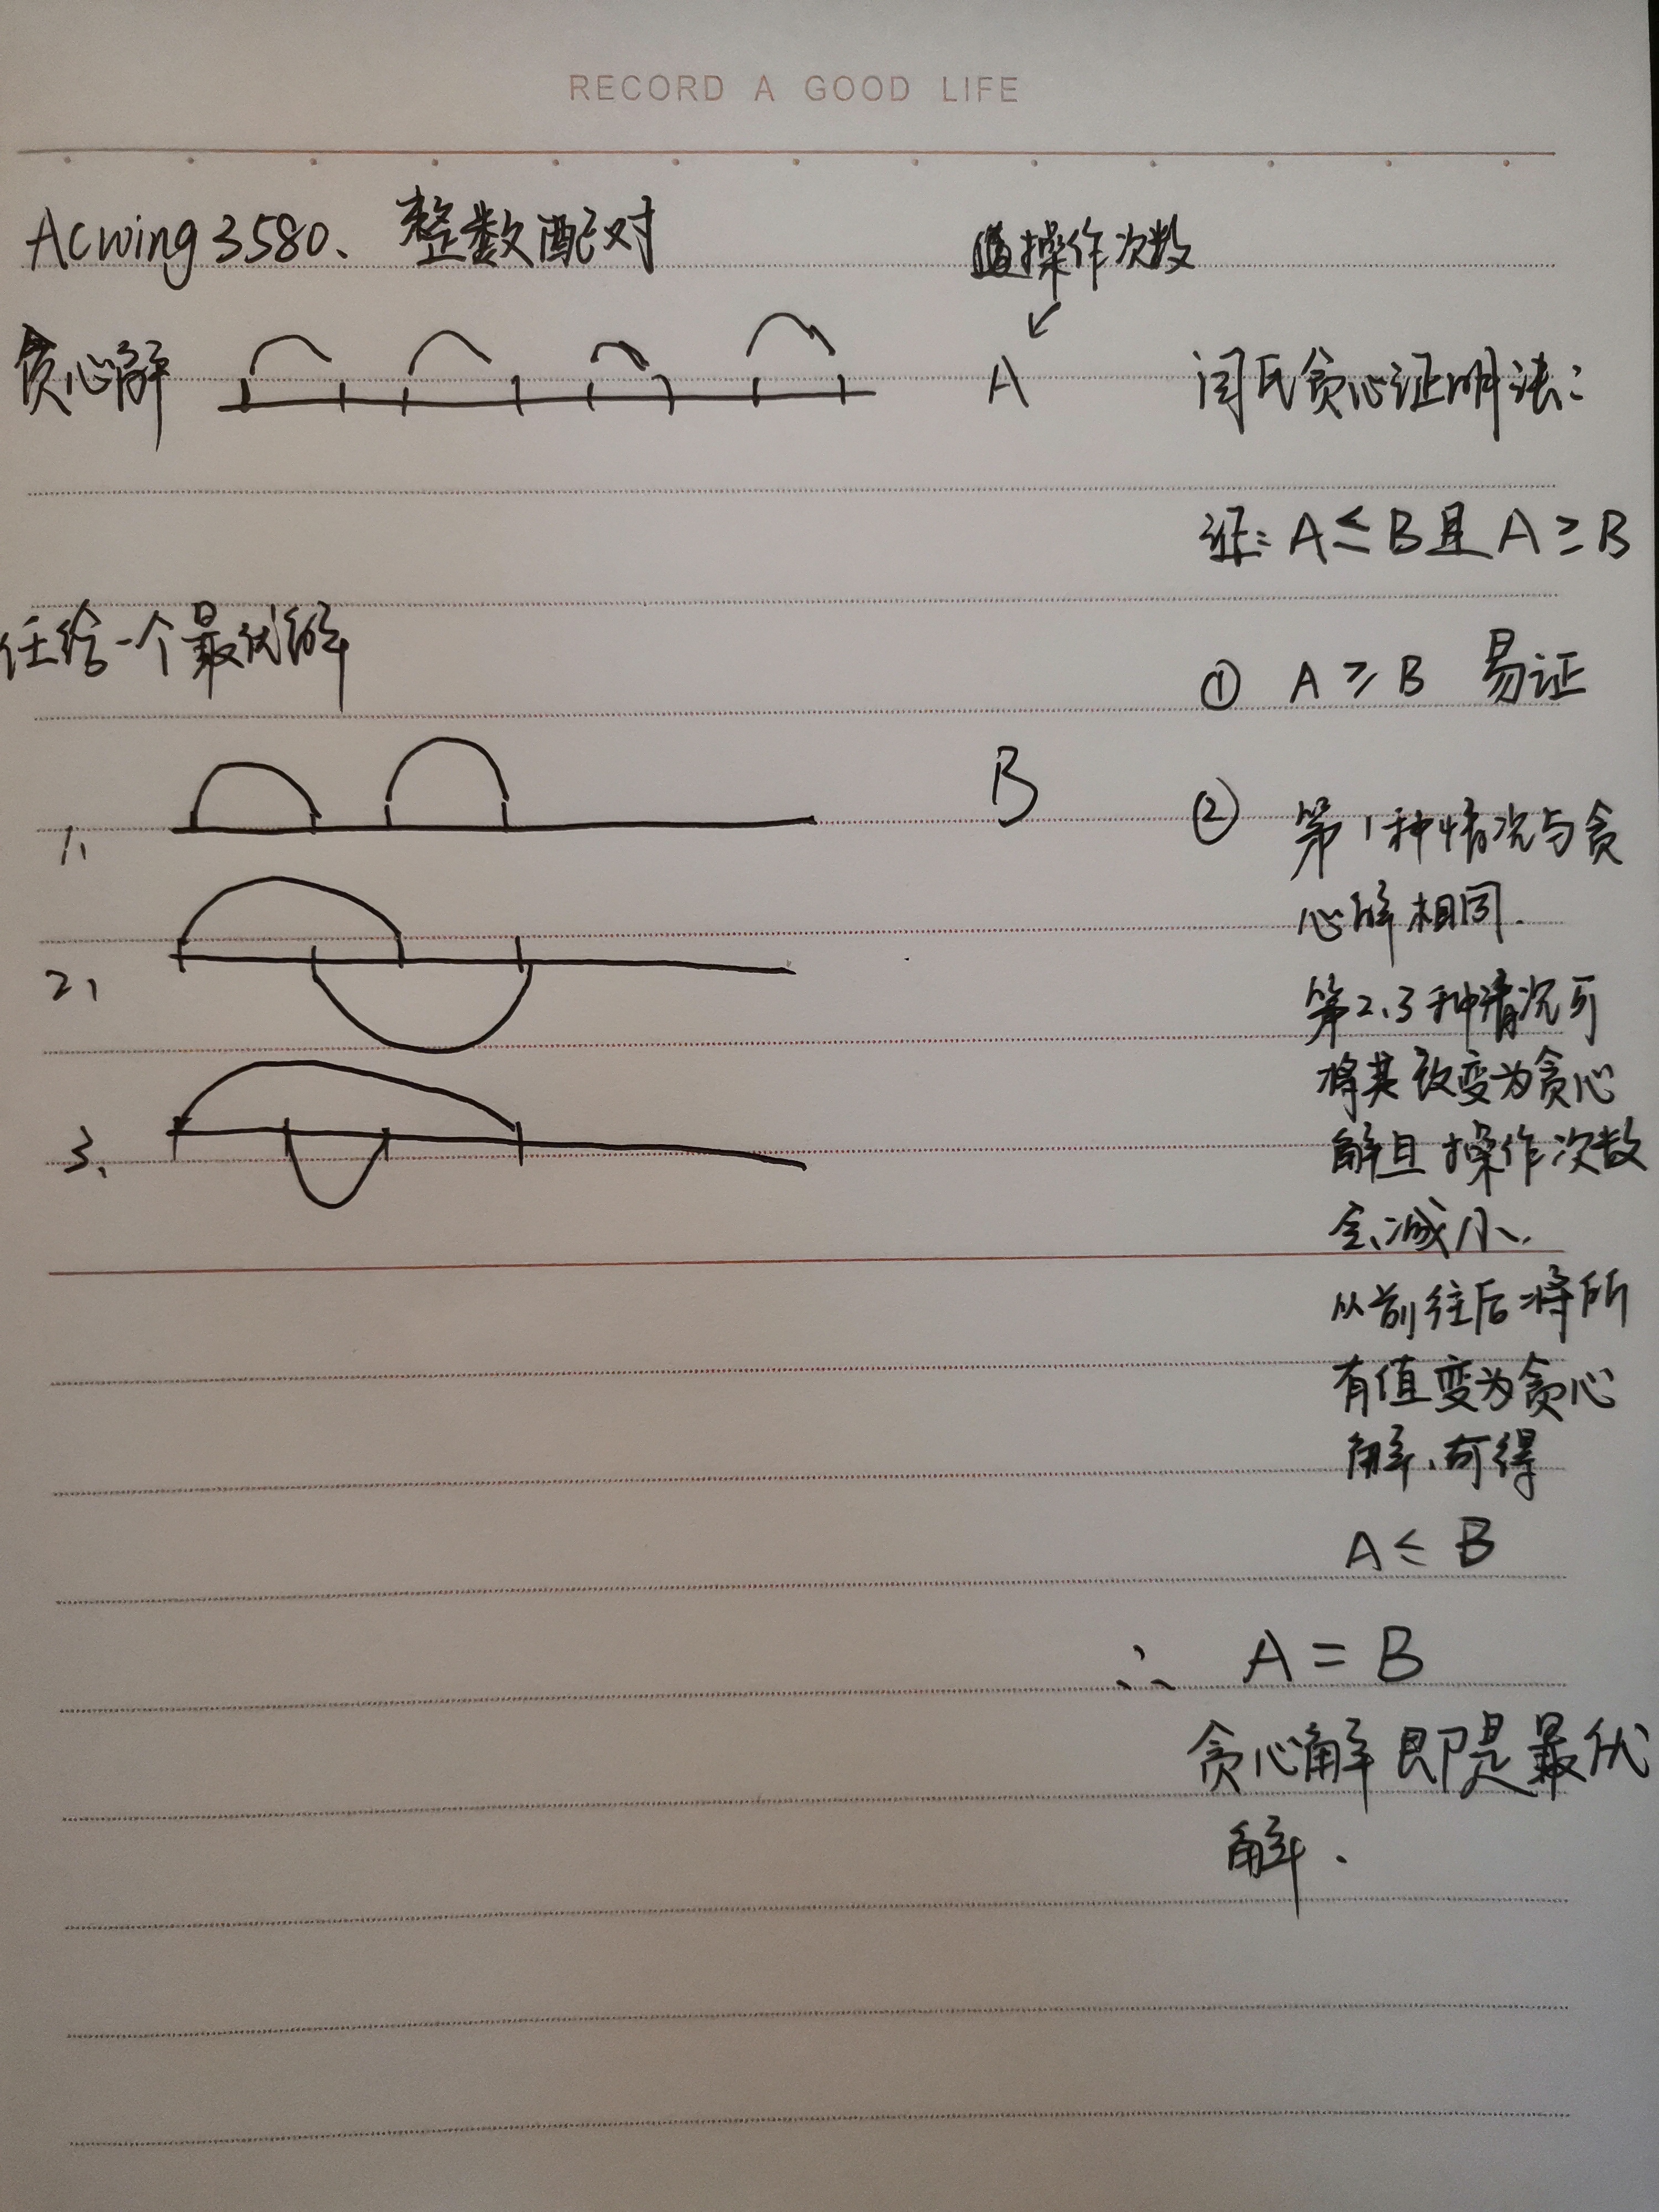 RECORD A GOOD LIFE
Acwing 3580、整数配对
操作次数
贪心解
A
闫氏贪心证明法：
证：A≤B且A≥B
任给一个最优解
① A≥B 易证
1、
B
② 第1种情况与贪
心解相同.
2、
第2、3种情况可
将其改变为贪心
3、
解且操作次数
会减小.
从前往后将所
有值变为贪心
解、可得
A≤B
∴ A=B
贪心解即是最优
解.